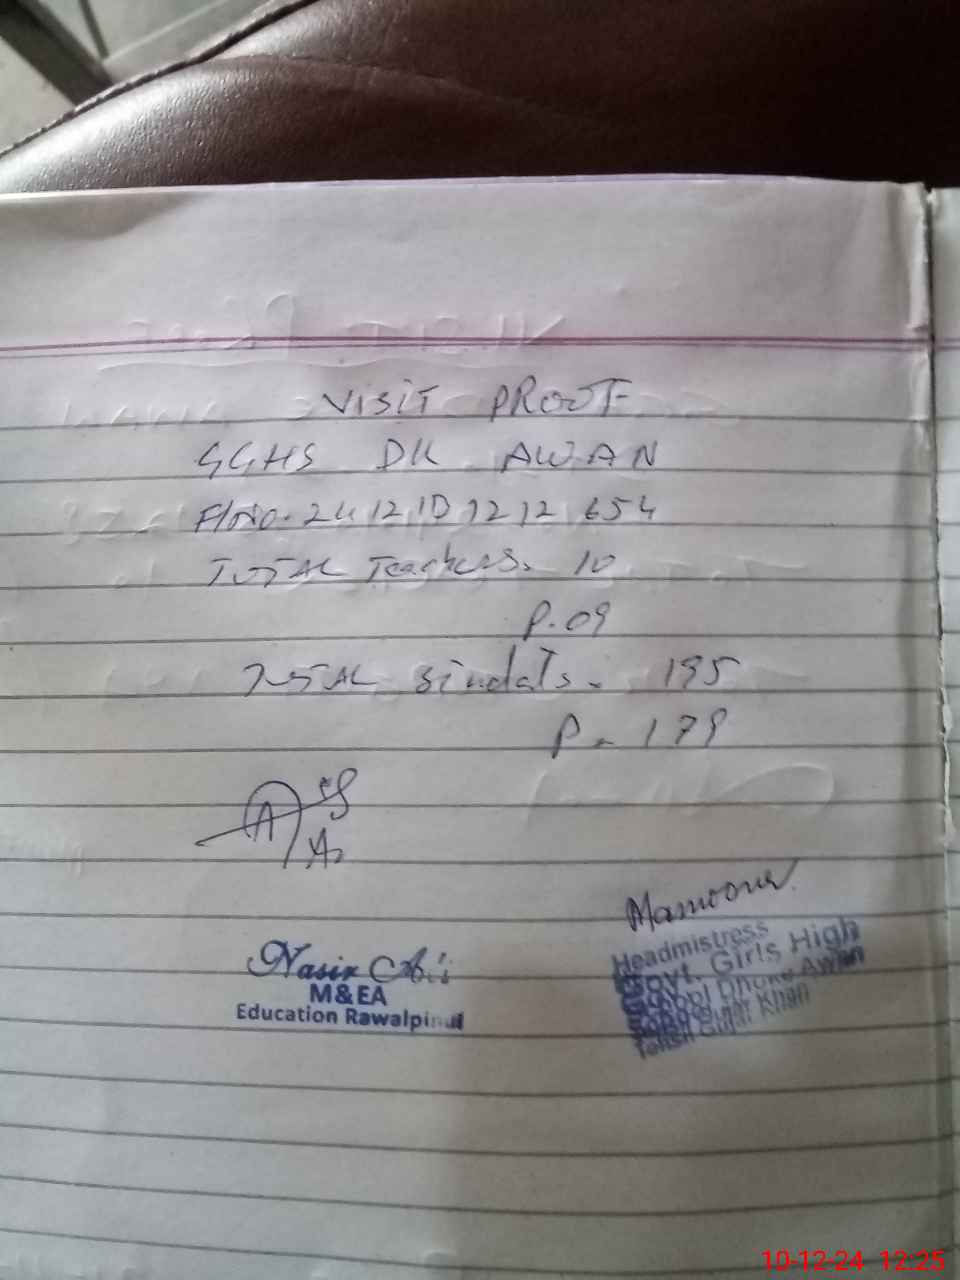 VISIT PROOF
GGHS DK AWAN
TOTAL Teachers. 10
P. 09
TOTAL Students. 195
P. 179
Mamoona
Nasir Ali
M&EA
Education Rawalpindi
Headmistress
Govt. Girls High
School Dhoke Awan
Tehsil Gujar Khan
10-12-24 12:25